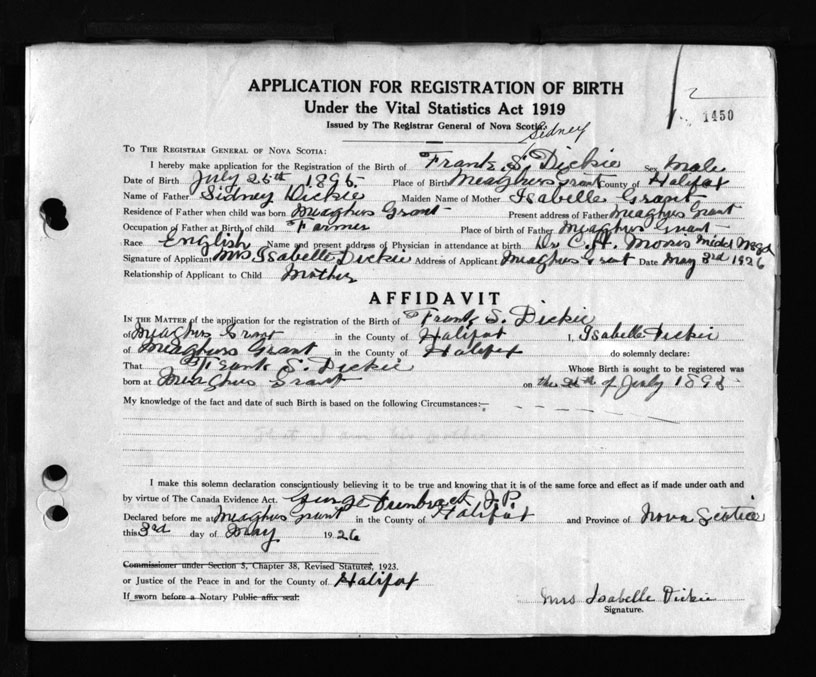 APPLICATION FOR REGISTRATION OF BIRTH
Under the Vital Statistics Act 1919
Issued by The Registrar General of Nova Scotia
1450
Sidney
TO THE REGISTRAR GENERAL OF NOVA SCOTIA:
I hereby make application for the Registration of the Birth of Frank S. Dickie Sex Male
Date of Birth July 25th Place of Birth Meaghers Grant County of Halifax
Name of Father Sidney Dickie Maiden Name of Mother Isabelle Grant
Residence of Father when child was born Meaghers Grant Present address of Father Meaghers Grant
Occupation of Father at Birth of child Farmer Place of birth of Father Meaghers Grant
Race English Name and present address of Physician in attendance at birth Dr C.H. Morris Middle Musq
Signature of Applicant Mrs Isabelle Dickie Address of Applicant Meaghers Grant Date May 3rd 1926
Relationship of Applicant to Child Mother
AFFIDAVIT
IN THE MATTER of the application for the registration of the Birth of Frank S. Dickie
of Meaghers Grant in the County of Halifax I, Isabelle Dickie
of Meaghers Grant in the County of Halifax do solemnly declare:
That Frank S. Dickie Whose Birth is sought to be registered was
born at Meaghers Grant on the of July
My knowledge of the fact and date of such Birth is based on the following Circumstances:—
that I am his mother
I make this solemn declaration conscientiously believing it to be true and knowing that it is of the same force and effect as if made under oath and
by virtue of The Canada Evidence Act. George J.P.
Declared before me at Meaghers Grant in the County of Halifax and Province of Nova Scotia
this 3rd day of May 1926
Commissioner under Section 5, Chapter 38, Revised Statutes, 1923.
or Justice of the Peace in and for the County of Halifax
If sworn before a Notary Public affix seal.
Mrs Isabelle Dickie
Signature.